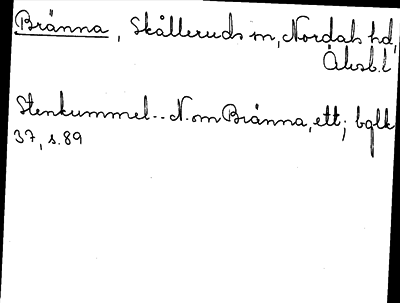 Bränna, Skålleruds sn, Nordals hd,
Älvsb.l
Stenkummel.. N.om Bränna, ett; bglk
37, s.89